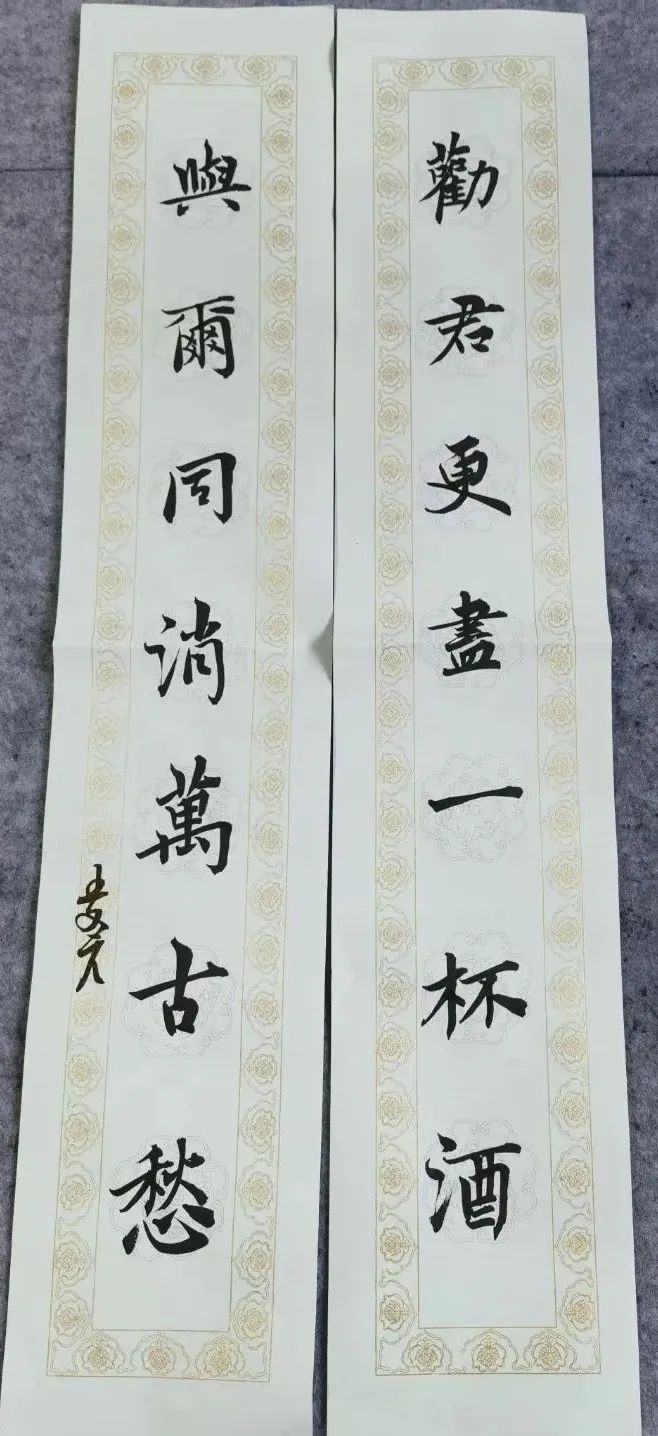 勸君更盡一杯酒
與爾同消萬古愁